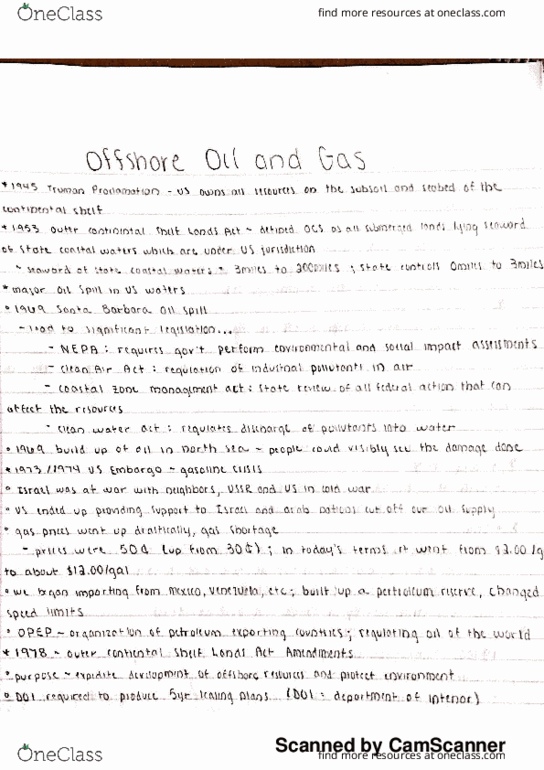 OneClass
find more resources at oneclass.com
Offshore Oil and Gas
* 1945 Truman Proclamation - US owns all resources on the subsoil and seabed of the
continental shelf
* 1953 Outer Continental Shelf Lands Act - defined OCS as all submerged lands lying seaward
of state coastal waters which are under US jurisdiction
~ seaward of state coastal waters = 3miles to 200miles ; state controls 0miles to 3miles
* major oil spill in US waters
• 1969 Santa Barbara oil spill
- lead to significant legislation...
- NEPA : requires gov't perform environmental and social impact assessments
- Clean Air Act : regulation of industrial pollutants in air
- coastal zone management act : state review of all federal action that can
affect the resources
- clean water act : regulates discharge of pollutants into water
• 1969 build up of oil in north sea - people could visibly see the damage done
* 1973/1974 US Embargo - gasoline crisis
• Israel was at war with neighbors, USSR and US in cold war
• US ended up providing support to Israel and arab nations cut off our oil supply
• gas prices went up drastically, gas shortage
- prices were 50¢ (up from 30¢) ; in today's terms it went from $2.00/g
to about $12.00/gal
• we began importing from Mexico, Venezuela, etc ; built up a pertroleum reserve, changed
speed limits
• OPEP ~ organization of petroleum exporting countries ; regulating oil of the world
* 1978 ~ outer contiental shelf lands Act Amendments
• purpose - expidite development of offshore resources and protect environment
• DOI required to produce 5yr leasing plans (DOI : department of interior)
Scanned by CamScanner
OneClass
find more resources at oneclass.com